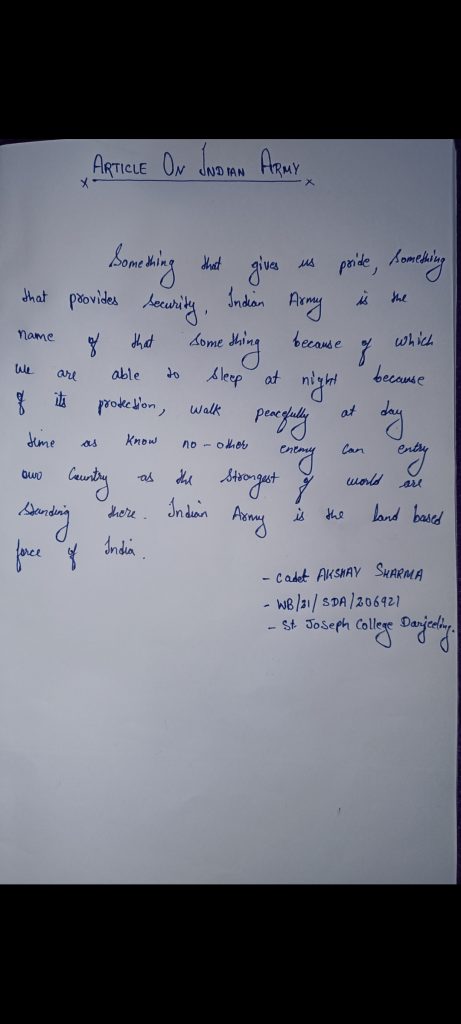 ARTICLE ON INDIAN ARMY
Something that gives us pride, Something
that provides Security, Indian Army is the
name of that Something because of which
we are able to sleep at night because
of its protection, walk peacefully at day
time as know no-other enemy can entry
our Country as the Strongest of world are
Standing there. Indian Army is the land based
force of India.
- Cadet AKSHAY SHARMA
- WB/21/SDA/206921
- St. Joseph College Darjeeling.